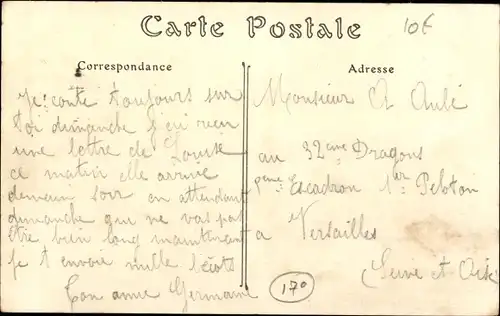 Carte Postale
10€
Correspondance
Je conte toujours sur
toi dimanche j'ai reçu
une lettre de Louise
ce matin elle arrive
demain soir en attendant
dimanche qui ne vas pas
être bien long maintenant
je t envoie mille
Ton amie Germaine
Adresse
Monsieur A Aubé
au 32eme Dragons
Escadron 1er Peloton
a Versailles
Seine et Oise
170